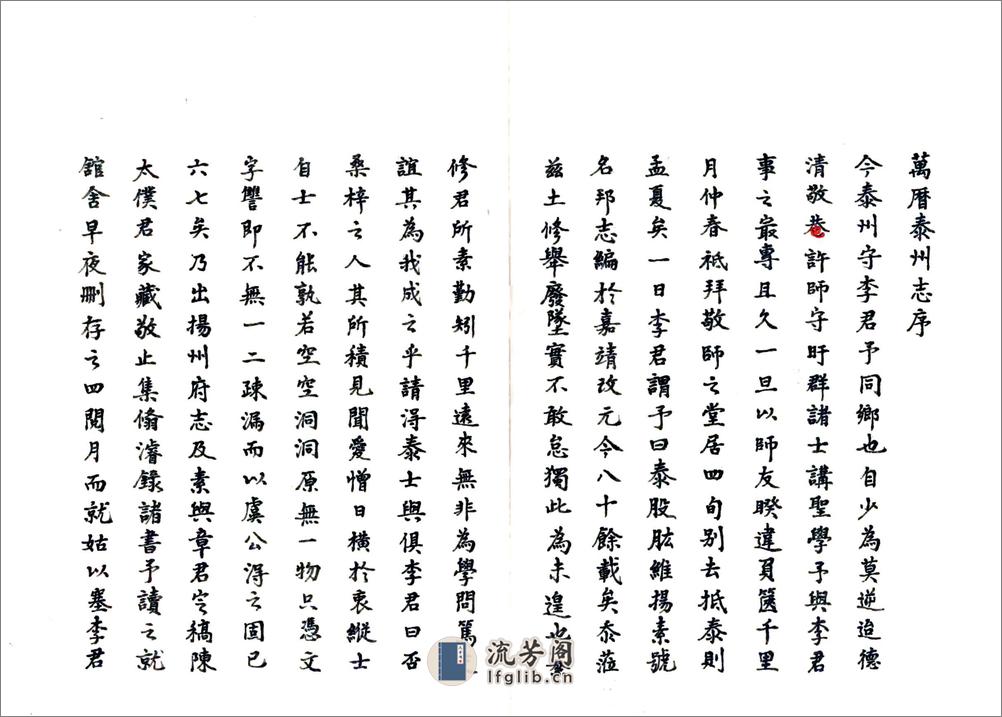 萬曆泰州志序
今泰州守李君予同鄉也自少為莫逆迨德
清敬菴許師守旴群諸士講聖學予與李君
事之最專且久一旦以師友睽違負篋千里
月仲春祗拜敬師之堂居四旬别去抵泰則
孟夏矣一日李君謂予曰泰股肱維揚素號
名邦志編於嘉靖改元今八十餘載矣忝蒞
兹土修舉廢墜實不敢怠獨此為未遑也
修君所素勤矧千里遠來無非為學問篤
誼其為我成之乎請得泰士與俱李君曰否
桑梓之人其所積見聞愛憎日橫於衷縱士
自士不能孰若空空洞洞原無一物只憑文
字讐即不無一二疎漏而以虞公得之固已
六七矣乃出揚州府志及素與章君定稿陳
太僕君家藏敬止集脩濬錄諸書予讀之就
館舍早夜刪存之四閱月而就姑以塞李君
流芳阁
lfglib.cn